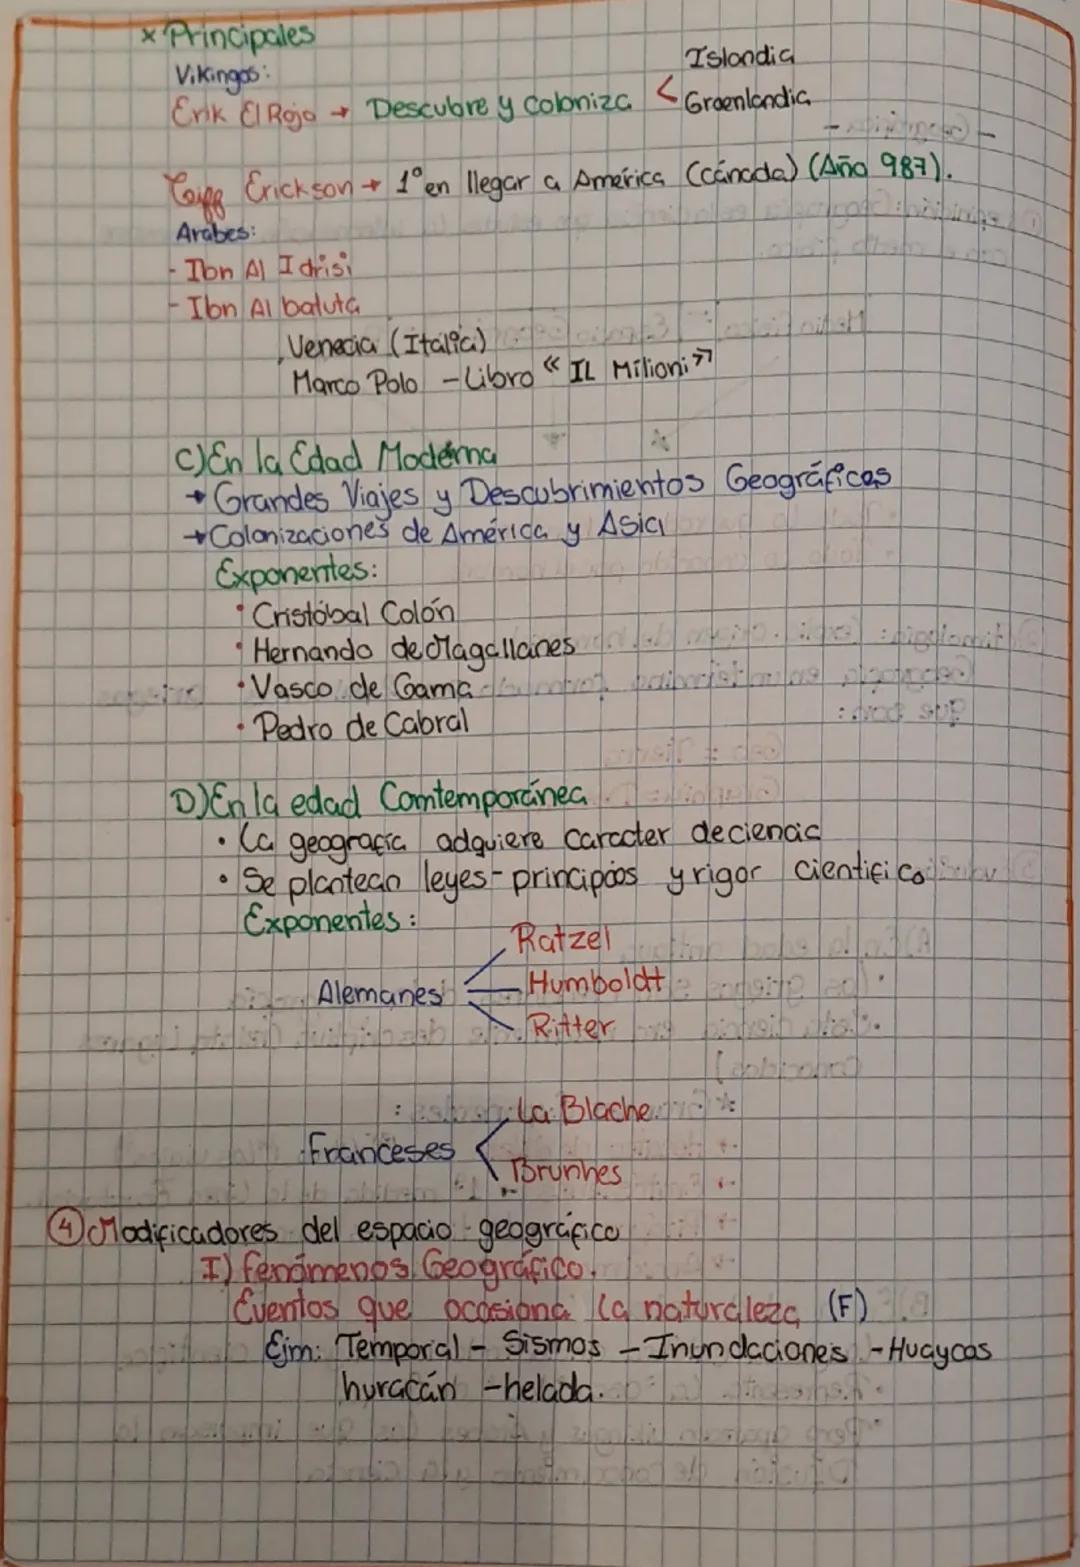 x Principales
Vikingos:
Erik El Rojo → Descubre y Coloniza < Islandia
Groenlandia
Erickson → 1° en llegar a America (cánada) (Año 987).
Arabes:
- Ibn Al Idrisi
- Ibn Al batuta
Venecia (Italia)
Marco Polo - Libro « IL Milioni »
C) En la Edad Moderna
→ Grandes Viajes y Descubrimientos Geográficos
→ Colonizaciones de América y Asia
Exponentes:
• Cristóbal Colón
• Hernando de Magallanes
• Vasco de Gama
• Pedro de Cabral
D) En la edad Comtemporánea
• La geografía adquiere caracter de ciencia
• Se plantean leyes - principios y rigor cientifico
Exponentes:
Alemanes
Ratzel
Humboldt
Ritter
Franceses
La Blache
Brunhes
④ Modificadores del espacio geográfico
I) fenómenos Geográfico.
Eventos que ocasiona la naturaleza (F)
Ejm: Temporal - Sismos - Inundaciones - Huaycos
huracán - helada.